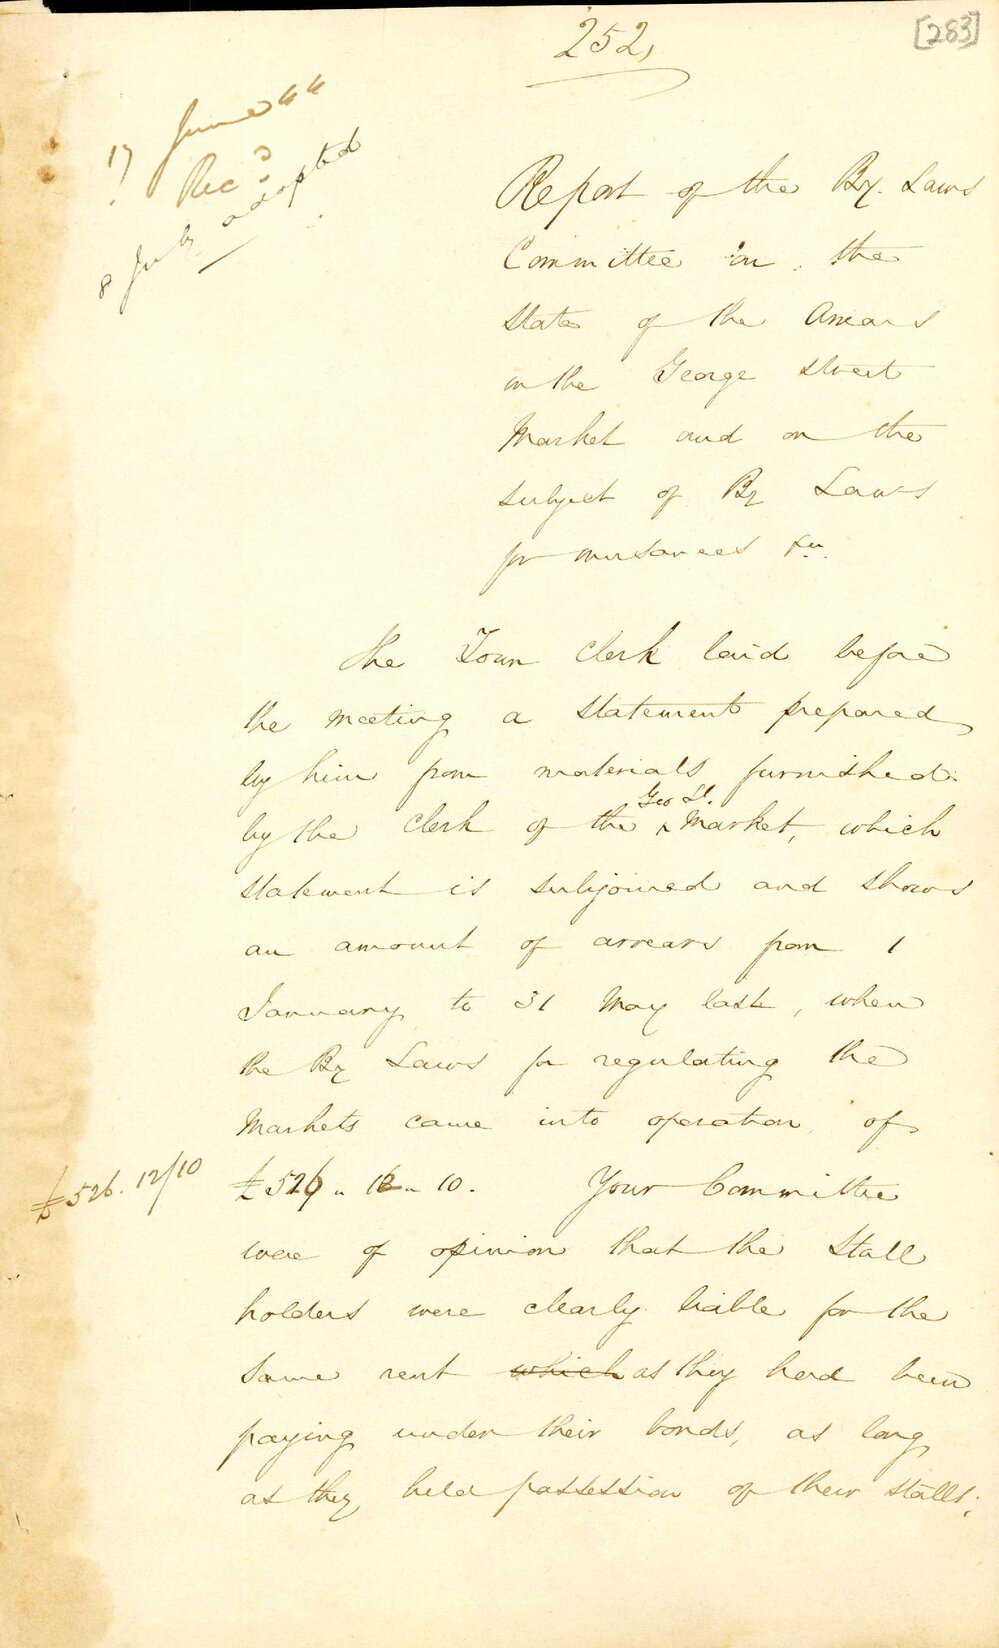 252,
[283]
17 June 44
Rec.d
8 July adopted
Report of the By. Laws
Committee on the
State of the Arrears
in the George Street
Market and on the
subject of By Laws
for nuisances &c.
The Town Clerk laid before
the meeting a statement prepared
by him from materials furnished
by the Clerk of the ^ Geo St. Market, which
statement is subjoined and shows
an amount of arrears from 1
January to 31 May last, when
the By Laws for regulating the
Markets came into operation, of
£526. 12/10
£526 " 12 " 10. Your Committee
were of opinion that the Stall
holders were clearly liable for the
same rent which as they had been
paying under their bonds, as long
as they held possession of their stalls;